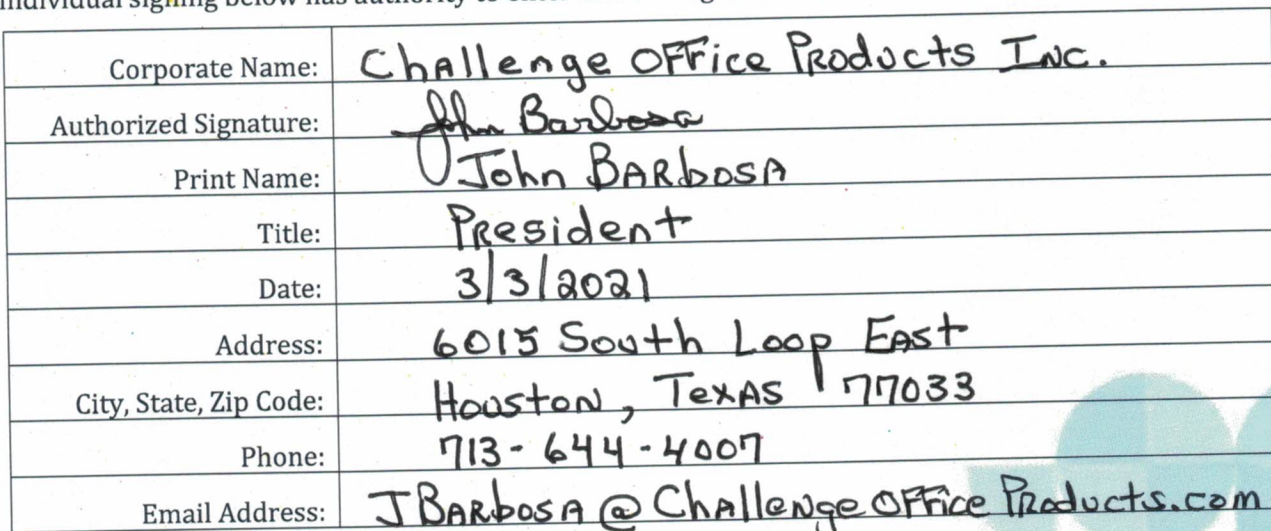 individual signing below has authority to
Corporate Name: Challenge OFFice Products Inc.
Authorized Signature: John Barbosa
Print Name: John BARbosA
Title: President
Date: 3/3/2021
Address: 6015 South Loop East
City, State, Zip Code: Houston, Texas 77033
Phone: 713-644-4007
Email Address: JBARbosA@ChallengeOFFiceProducts.com